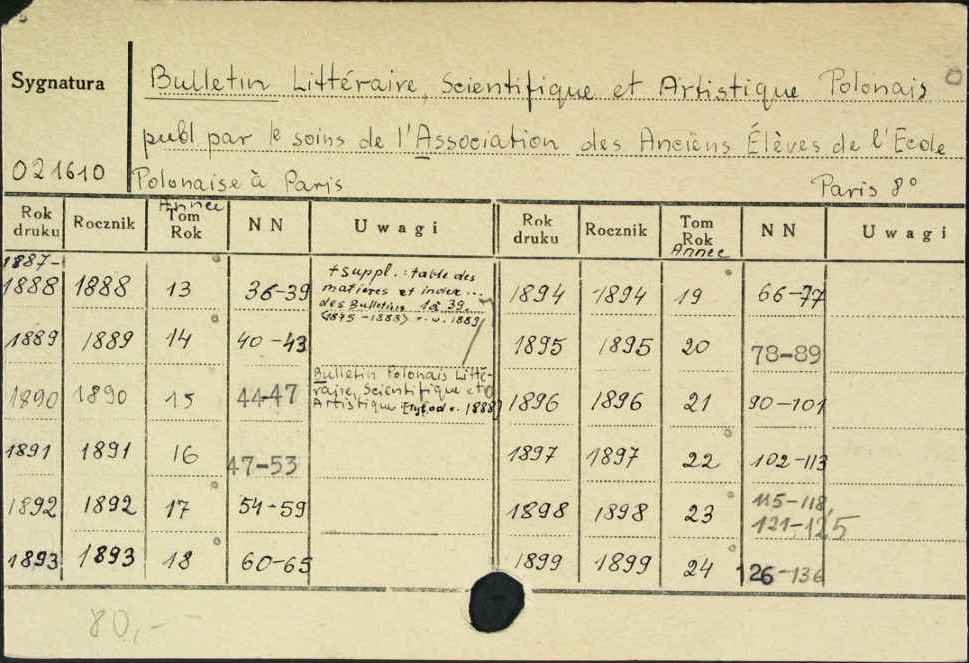 Sygnatura
021610
Bulletin Littéraire, Scientifique et Artistique Polonais
publ par le soins de l'Association des Anciens Élèves de l'Ecole
Polonaise à Paris Paris 8°
Rok druku Rocznik Année Tom Rok NN Uwagi Rok druku Rocznik Tom Rok Année NN Uwagi
1887-
1888 1888 13 36-39 1894 1894 19 66-77
+ suppl.: table des
matières et index...
des Bulletins 1 à 39.
(1875-1888)
1889 1889 14 40-43 1895 1895 20 78-89
1890 1890 15 44-47 1896 1896 21 90-101
Bulletin Polonais Litté-
raire, Scientifique et
Artistique
1891 1891 16 47-53 1897 1897 22 102-113
1892 1892 17 54-59 1898 1898 23 115-118,
121-125
1893 1893 18 60-65 1899 1899 24 126-136
80,-